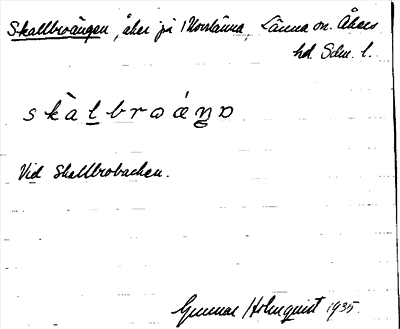 Skallbroängen, åker på 1 Korslänna, Länna sn. Åkers
hd. Sdm. l.
skàlbroáŋɒ
Vid Skallbrobacken.
Gunnar Holmquist 1935.